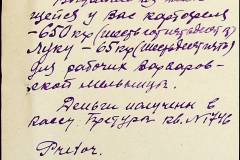 щейся у Вас картофеля
-650 кгр (шестьсот пятьдесят)
Луку - 65 кгр (шестьдесят пять)
для рабочих Варваров-
ской мельницы.
Деньги получены в
кассу Претуры кв. № 1746
Pretor.